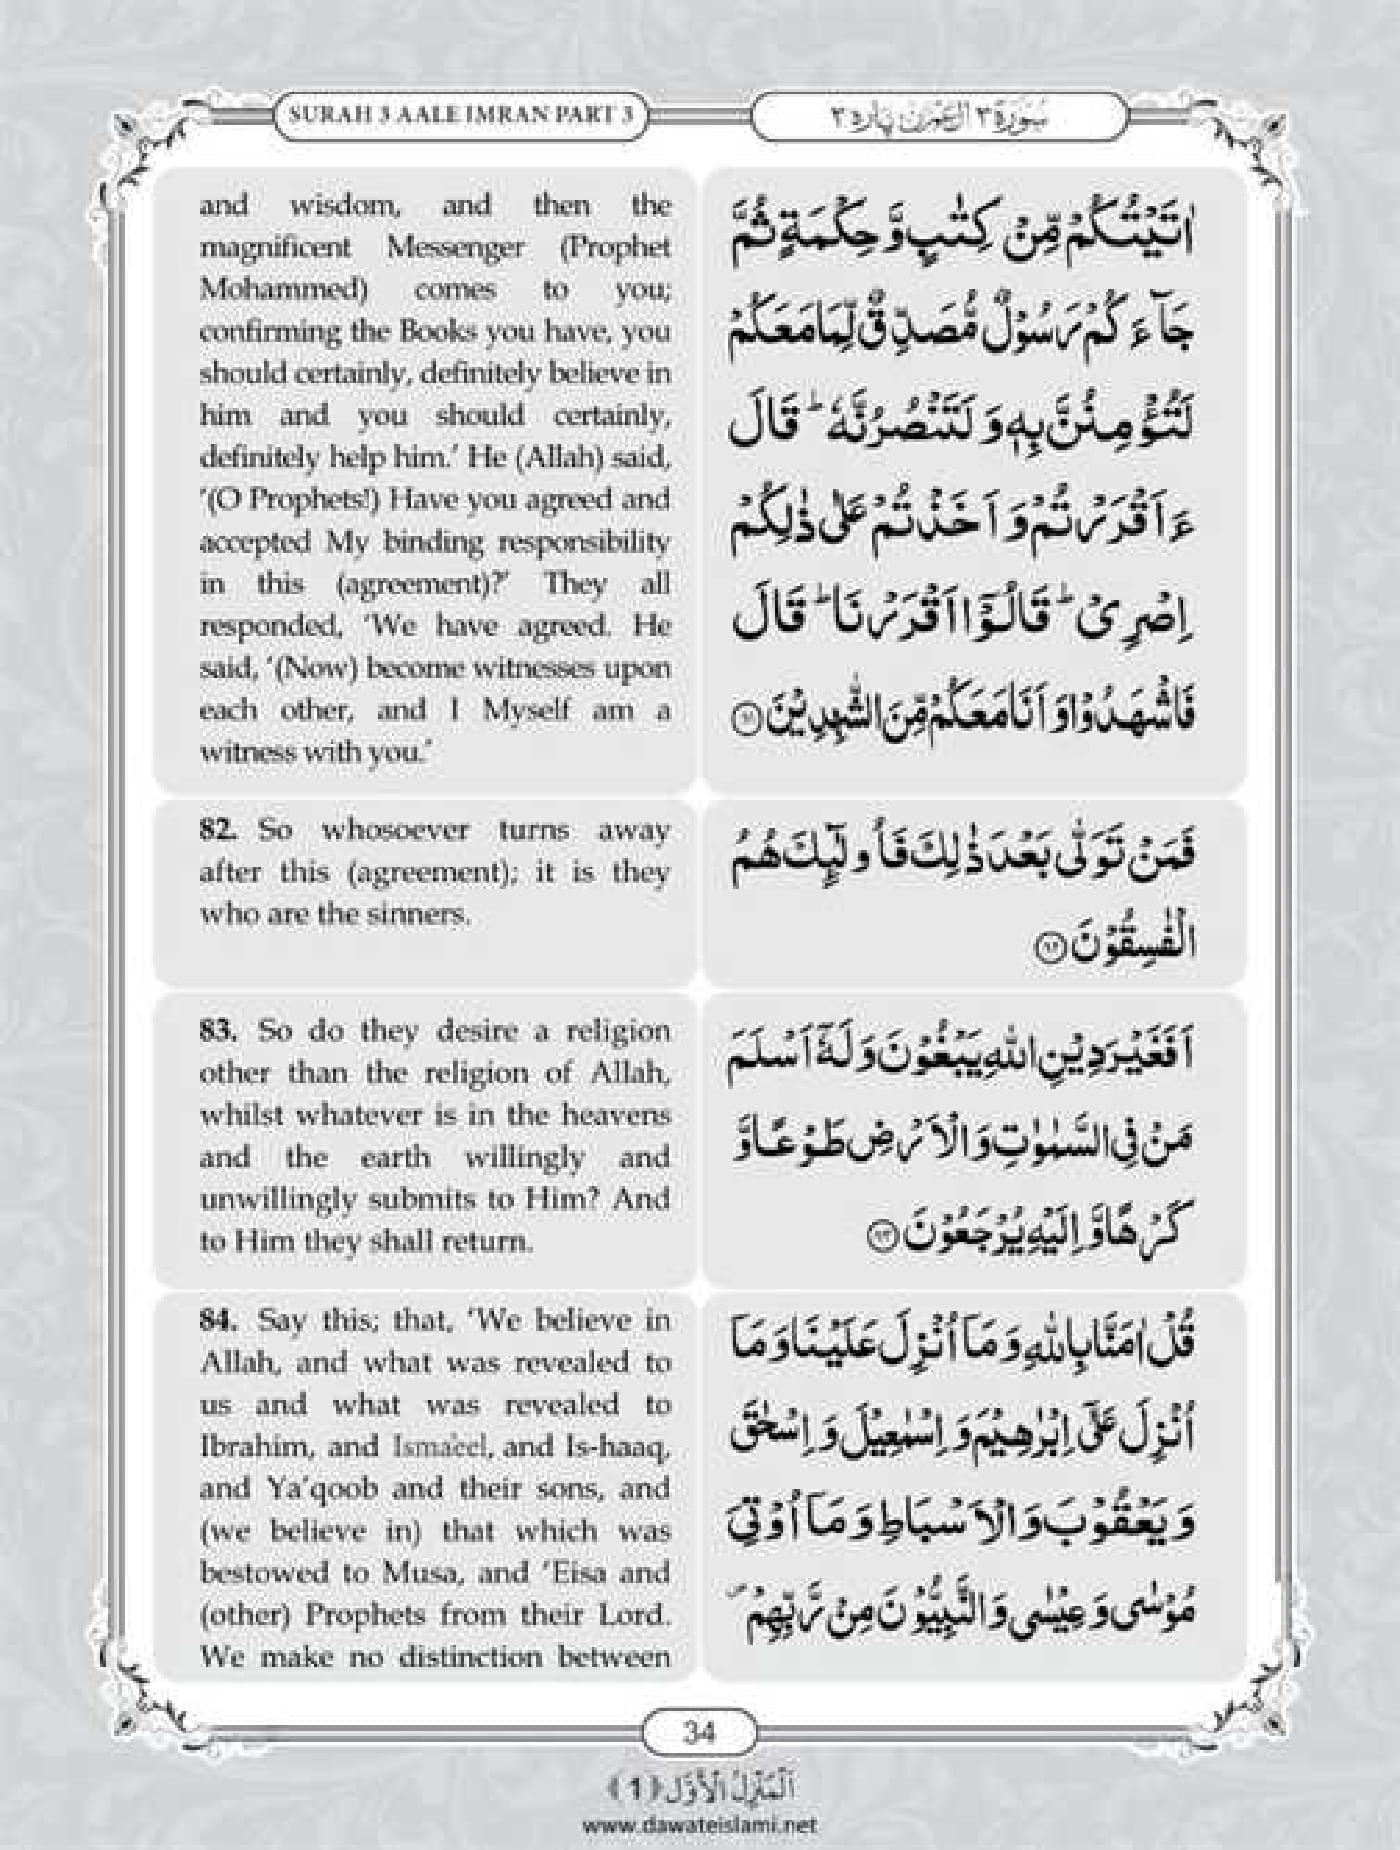 SURAH 3 AALE IMRAN PART 3
سُوْرَةُ ٣ اٰلِ عِمْرٰن پارہ ٣
and wisdom, and then the
magnificent Messenger (Prophet
Mohammed) comes to you;
confirming the Books you have, you
should certainly, definitely believe in
him and you should certainly,
definitely help him.’ He (Allah) said,
‘(O Prophets!) Have you agreed and
accepted My binding responsibility
in this (agreement)?’ They all
responded, ‘We have agreed. He
said, ‘(Now) become witnesses upon
each other, and I Myself am a
witness with you.’
اٰتَيْتُكُمْ مِّنْ كِتٰبٍ وَّ حِكْمَةٍ ثُمَّ
جَآءَكُمْ رَسُوْلٌ مُّصَدِّقٌ لِّمَا مَعَكُمْ
لَتُؤْمِنُنَّ بِهٖ وَ لَتَنْصُرُنَّهٗ ؕ قَالَ
ءَاَقْرَرْتُمْ وَ اَخَذْتُمْ عَلٰى ذٰلِكُمْ
اِصْرِىْ ؕ قَالُوْۤا اَقْرَرْنَا ؕ قَالَ
فَاشْهَدُوْا وَ اَنَا مَعَكُمْ مِّنَ الشّٰهِدِيْنَ ﴿۸۱﴾
82. So whosoever turns away
after this (agreement); it is they
who are the sinners.
فَمَنْ تَوَلّٰى بَعْدَ ذٰلِكَ فَاُولٰٓئِكَ هُمُ
الْفٰسِقُوْنَ ﴿۸۲﴾
83. So do they desire a religion
other than the religion of Allah,
whilst whatever is in the heavens
and the earth willingly and
unwillingly submits to Him? And
to Him they shall return.
اَفَغَيْرَ دِيْنِ اللّٰهِ يَبْغُوْنَ وَ لَهٗۤ اَسْلَمَ
مَنْ فِى السَّمٰوٰتِ وَ الْاَرْضِ طَوْعًا وَّ
كَرْهًا وَّ اِلَيْهِ يُرْجَعُوْنَ ﴿۸۳﴾
84. Say this; that, ‘We believe in
Allah, and what was revealed to
us and what was revealed to
Ibrahim, and Isma'eel, and Is-haaq,
and Ya’qoob and their sons, and
(we believe in) that which was
bestowed to Musa, and ‘Eisa and
(other) Prophets from their Lord.
We make no distinction between
قُلْ اٰمَنَّا بِاللّٰهِ وَ مَاۤ اُنْزِلَ عَلَيْنَا وَ مَاۤ
اُنْزِلَ عَلٰۤى اِبْرٰهِيْمَ وَ اِسْمٰعِيْلَ وَ اِسْحٰقَ
وَ يَعْقُوْبَ وَ الْاَسْبَاطِ وَ مَاۤ اُوْتِىَ
مُوْسٰى وَ عِيْسٰى وَ النَّبِيُّوْنَ مِنْ رَّبِّهِمْ ۪
34
اَلْمَنْزِلُ الْاَوَّل ﴿1﴾
www.dawateislami.net